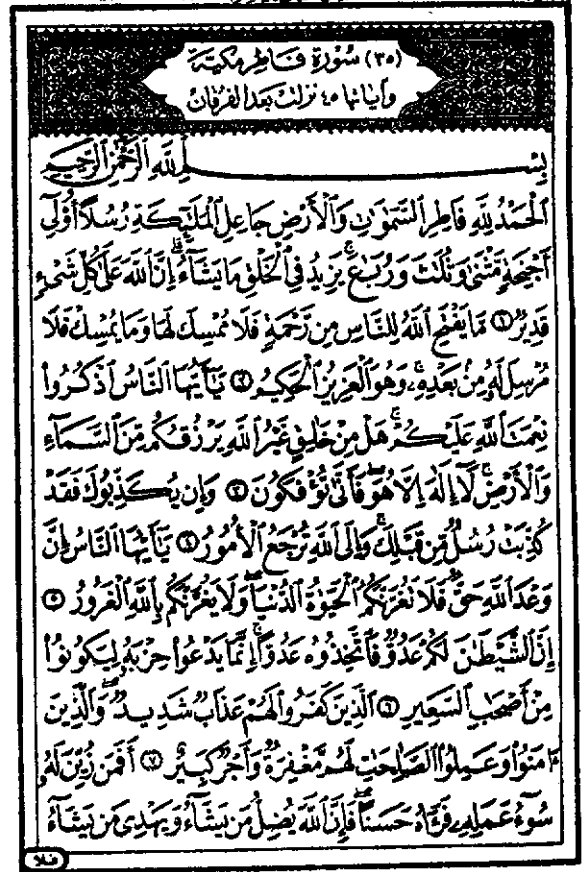 (٣٥) سُورَةُ فَاطِرٍ مَكِّيَّة
وَآيَاتُهَا ٤٥ نَزَلَتْ بَعْدَ الْفُرْقَانِ
بِسْمِ ٱللَّهِ ٱلرَّحْمَٰنِ ٱلرَّحِيمِ
ٱلْحَمْدُ لِلَّهِ فَاطِرِ ٱلسَّمَٰوَٰتِ وَٱلْأَرْضِ جَاعِلِ ٱلْمَلَٰٓئِكَةِ رُسُلًا أُو۟لِىٓ
أَجْنِحَةٍ مَّثْنَىٰ وَثُلَٰثَ وَرُبَٰعَ ۚ يَزِيدُ فِى ٱلْخَلْقِ مَا يَشَآءُ ۚ إِنَّ ٱللَّهَ عَلَىٰ كُلِّ شَىْءٍ
قَدِيرٌ ١ مَّا يَفْتَحِ ٱللَّهُ لِلنَّاسِ مِن رَّحْمَةٍ فَلَا مُمْسِكَ لَهَا وَمَا يُمْسِكْ فَلَا
مُرْسِلَ لَهُۥ مِنۢ بَعْدِهِۦ ۚ وَهُوَ ٱلْعَزِيزُ ٱلْحَكِيمُ ٢ يَٰٓأَيُّهَا ٱلنَّاسُ ٱذْكُرُوا۟
نِعْمَتَ ٱللَّهِ عَلَيْكُمْ ۚ هَلْ مِنْ خَٰلِقٍ غَيْرُ ٱللَّهِ يَرْزُقُكُم مِّنَ ٱلسَّمَآءِ
وَٱلْأَرْضِ ۚ لَآ إِلَٰهَ إِلَّا هُوَ ۖ فَأَنَّىٰ تُؤْفَكُونَ ٣ وَإِن يُكَذِّبُوكَ فَقَدْ
كُذِّبَتْ رُسُلٌ مِّن قَبْلِكَ ۚ وَإِلَى ٱللَّهِ تُرْجَعُ ٱلْأُمُورُ ٤ يَٰٓأَيُّهَا ٱلنَّاسُ إِنَّ
وَعْدَ ٱللَّهِ حَقٌّ ۖ فَلَا تَغُرَّنَّكُمُ ٱلْحَيَوٰةُ ٱلدُّنْيَا ۖ وَلَا يَغُرَّنَّكُم بِٱللَّهِ ٱلْغَرُورُ ٥
إِنَّ ٱلشَّيْطَٰنَ لَكُمْ عَدُوٌّ فَٱتَّخِذُوهُ عَدُوًّا ۚ إِنَّمَا يَدْعُوا۟ حِزْبَهُۥ لِيَكُونُوا۟
مِنْ أَصْحَٰبِ ٱلسَّعِيرِ ٦ ٱلَّذِينَ كَفَرُوا۟ لَهُمْ عَذَابٌ شَدِيدٌ ۖ وَٱلَّذِينَ
ءَامَنُوا۟ وَعَمِلُوا۟ ٱلصَّٰلِحَٰتِ لَهُم مَّغْفِرَةٌ وَأَجْرٌ كَبِيرٌ ٧ أَفَمَن زُيِّنَ لَهُۥ
سُوٓءُ عَمَلِهِۦ فَرَءَاهُ حَسَنًا ۖ فَإِنَّ ٱللَّهَ يُضِلُّ مَن يَشَآءُ وَيَهْدِى مَن يَشَآءُ
فلا